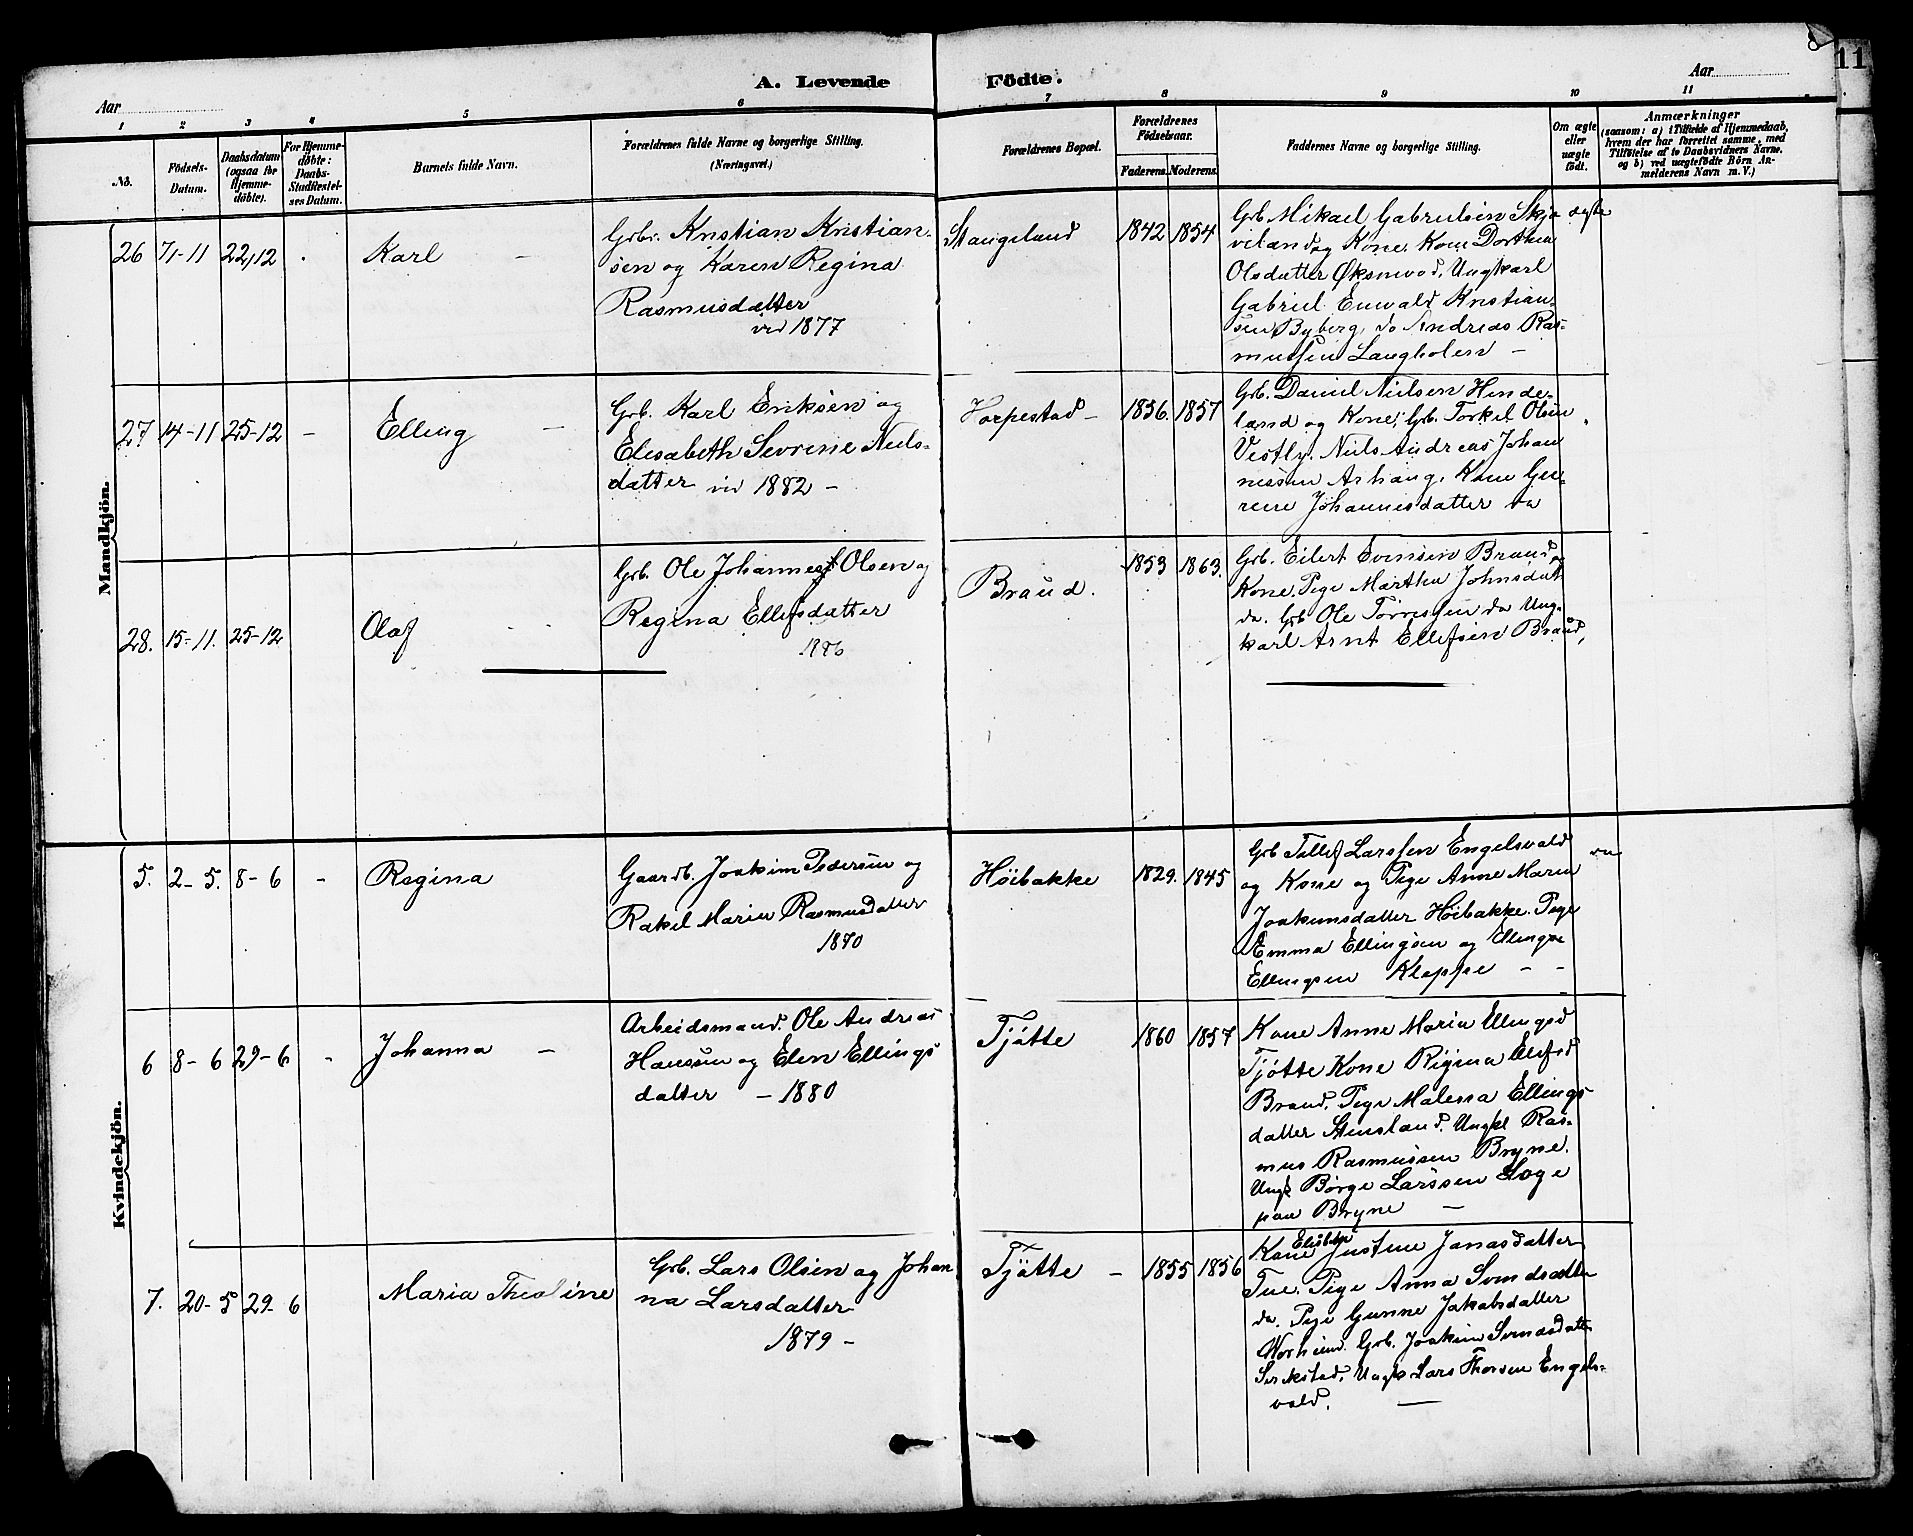 8
11
A. Levende Födte.
Aar
Aar
1 2 3 4 5 6 7 8 9 10 11
No.
Födsels-Datum.
Daabsdatum (ogsaa for Hjemme-döbte).
For Hjemme-döbte: Daabs-Stadfæstel-ses Datum.
Barnets fulde Navn.
Forældrenes fulde Navne og borgerlige Stilling. (Næringsvei.)
Forældrenes Bopæl.
Forældrenes Födselsaar.
Faderens. Moderens.
Faddernes Navne og borgerlige Stilling.
Om ægte eller uægte födt.
Anmærkninger
(saasom: a) i Tilfælde af Hjemmedaab, hvem der har forrettet samme, med Tilföielse af to Daabsvidners Navne, og b) ved uægtefödte Börn An-melderens Navn m. V.)
Mandkjön.
26 7-11 22,12 Karl
Grbr. Kristian Kristian-
sen og Karen Regina
Rasmusdatter
vid 1877
Stangeland 1842 1854
Grb Mikael Gabrielsen Skje
viland og Kone. Kone Dorthea
Olsdatter Øksnevad, Ungkarl
Gabriel Enwald Kristian-
sen Byberg, do Andreas Ras-
mussen Langholen –
ægte
27 14-11 25-12 – Elling –
Grb. Karl Eriksen og
Elisabeth Sevrine Niels-
datter vi 1882 –
Horpestad – 1856. 1857
Grb. Daniel Nielsen Hinde-
land og Kone, Grb. Torkel Olsen
Vestly. Niels Andreas Johan
nissen Arhaug, Kone
Johannesdatter da
28. 15-11. 25-12 Olaf
Grb. Ole Johannes Olsen og
Regina Ellefsdatter
1886
Braud. 1853 1863.
Grb. Eilert Evensen Braud og
Kone, Pige Martha Johnsdat
da. Grb Ole Torressen da Ung-
karl Arnt Ellefsen Braud,
Kvindekjön.
5. 2-5. 8-6 – Regina
Gaardb. Joakim Pedersen og
Rakel Maria Rasmusdatter
1870
Höibakke 1829. 1845
Grb Tollef Larssen Engelsvold
og Kone og Pige Anne Maria
Joakimsdatter Höibakke. Pige
Emma Ellingsen og Ellingse
Ellingsen Kleppe – –
da
6 8-6 29-6 – Johanna –
Arbeidsmand. Ole Andreas
Hanssen og Elen Ellings
datter – 1880
Tjötte 1860 1857
Kone Anne Maria Ellingsd
Tjötte Kone Regina Elefsd
Braud, Pige Malena Ellings
datter Stensland. Ungkl Ras-
mus Rasmussen Bryne.
Ungk Börge Larssen Loge
paa Bryne –
7. 20-5 29-6 Maria Theoline
Grb. Lars Olsen og Johan
na Larsdatter
1879 –
Tjötte – 1855 1856
Kone Justine Jonasdatter
Tue. Pige Anna Svendsdatter
da. Pige Gunne Jakobsdatter
Grb. Joakim
Ungk Lars Thorsen Engels-
vold. —